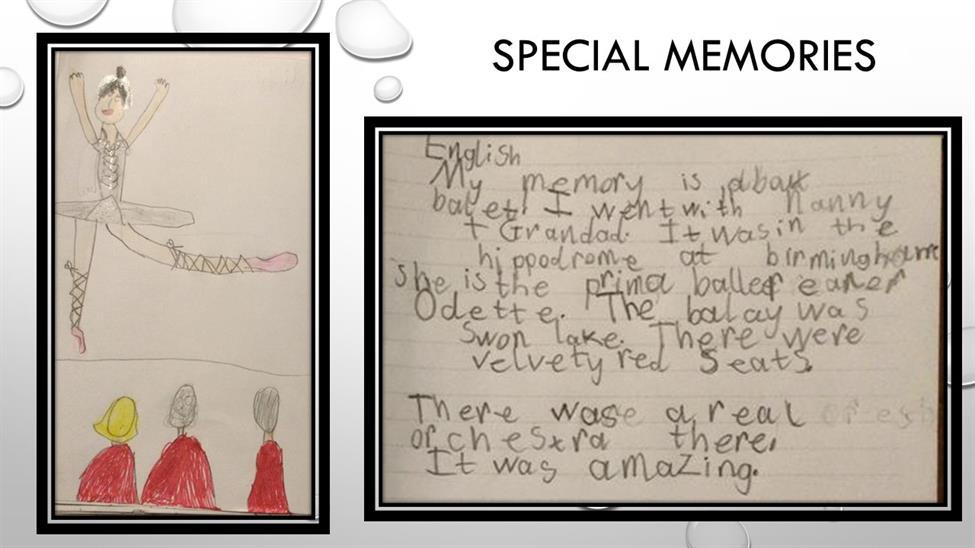 SPECIAL MEMORIES
English
My memory is abaut
balet! I went with Nanny
+ Grandad. It was in the
hippodrome at birmingham
She is the prima
Odette. The balay was
Swon lake. There were
velvety red seats.
There was a real
orchestra there.
It was amazing.